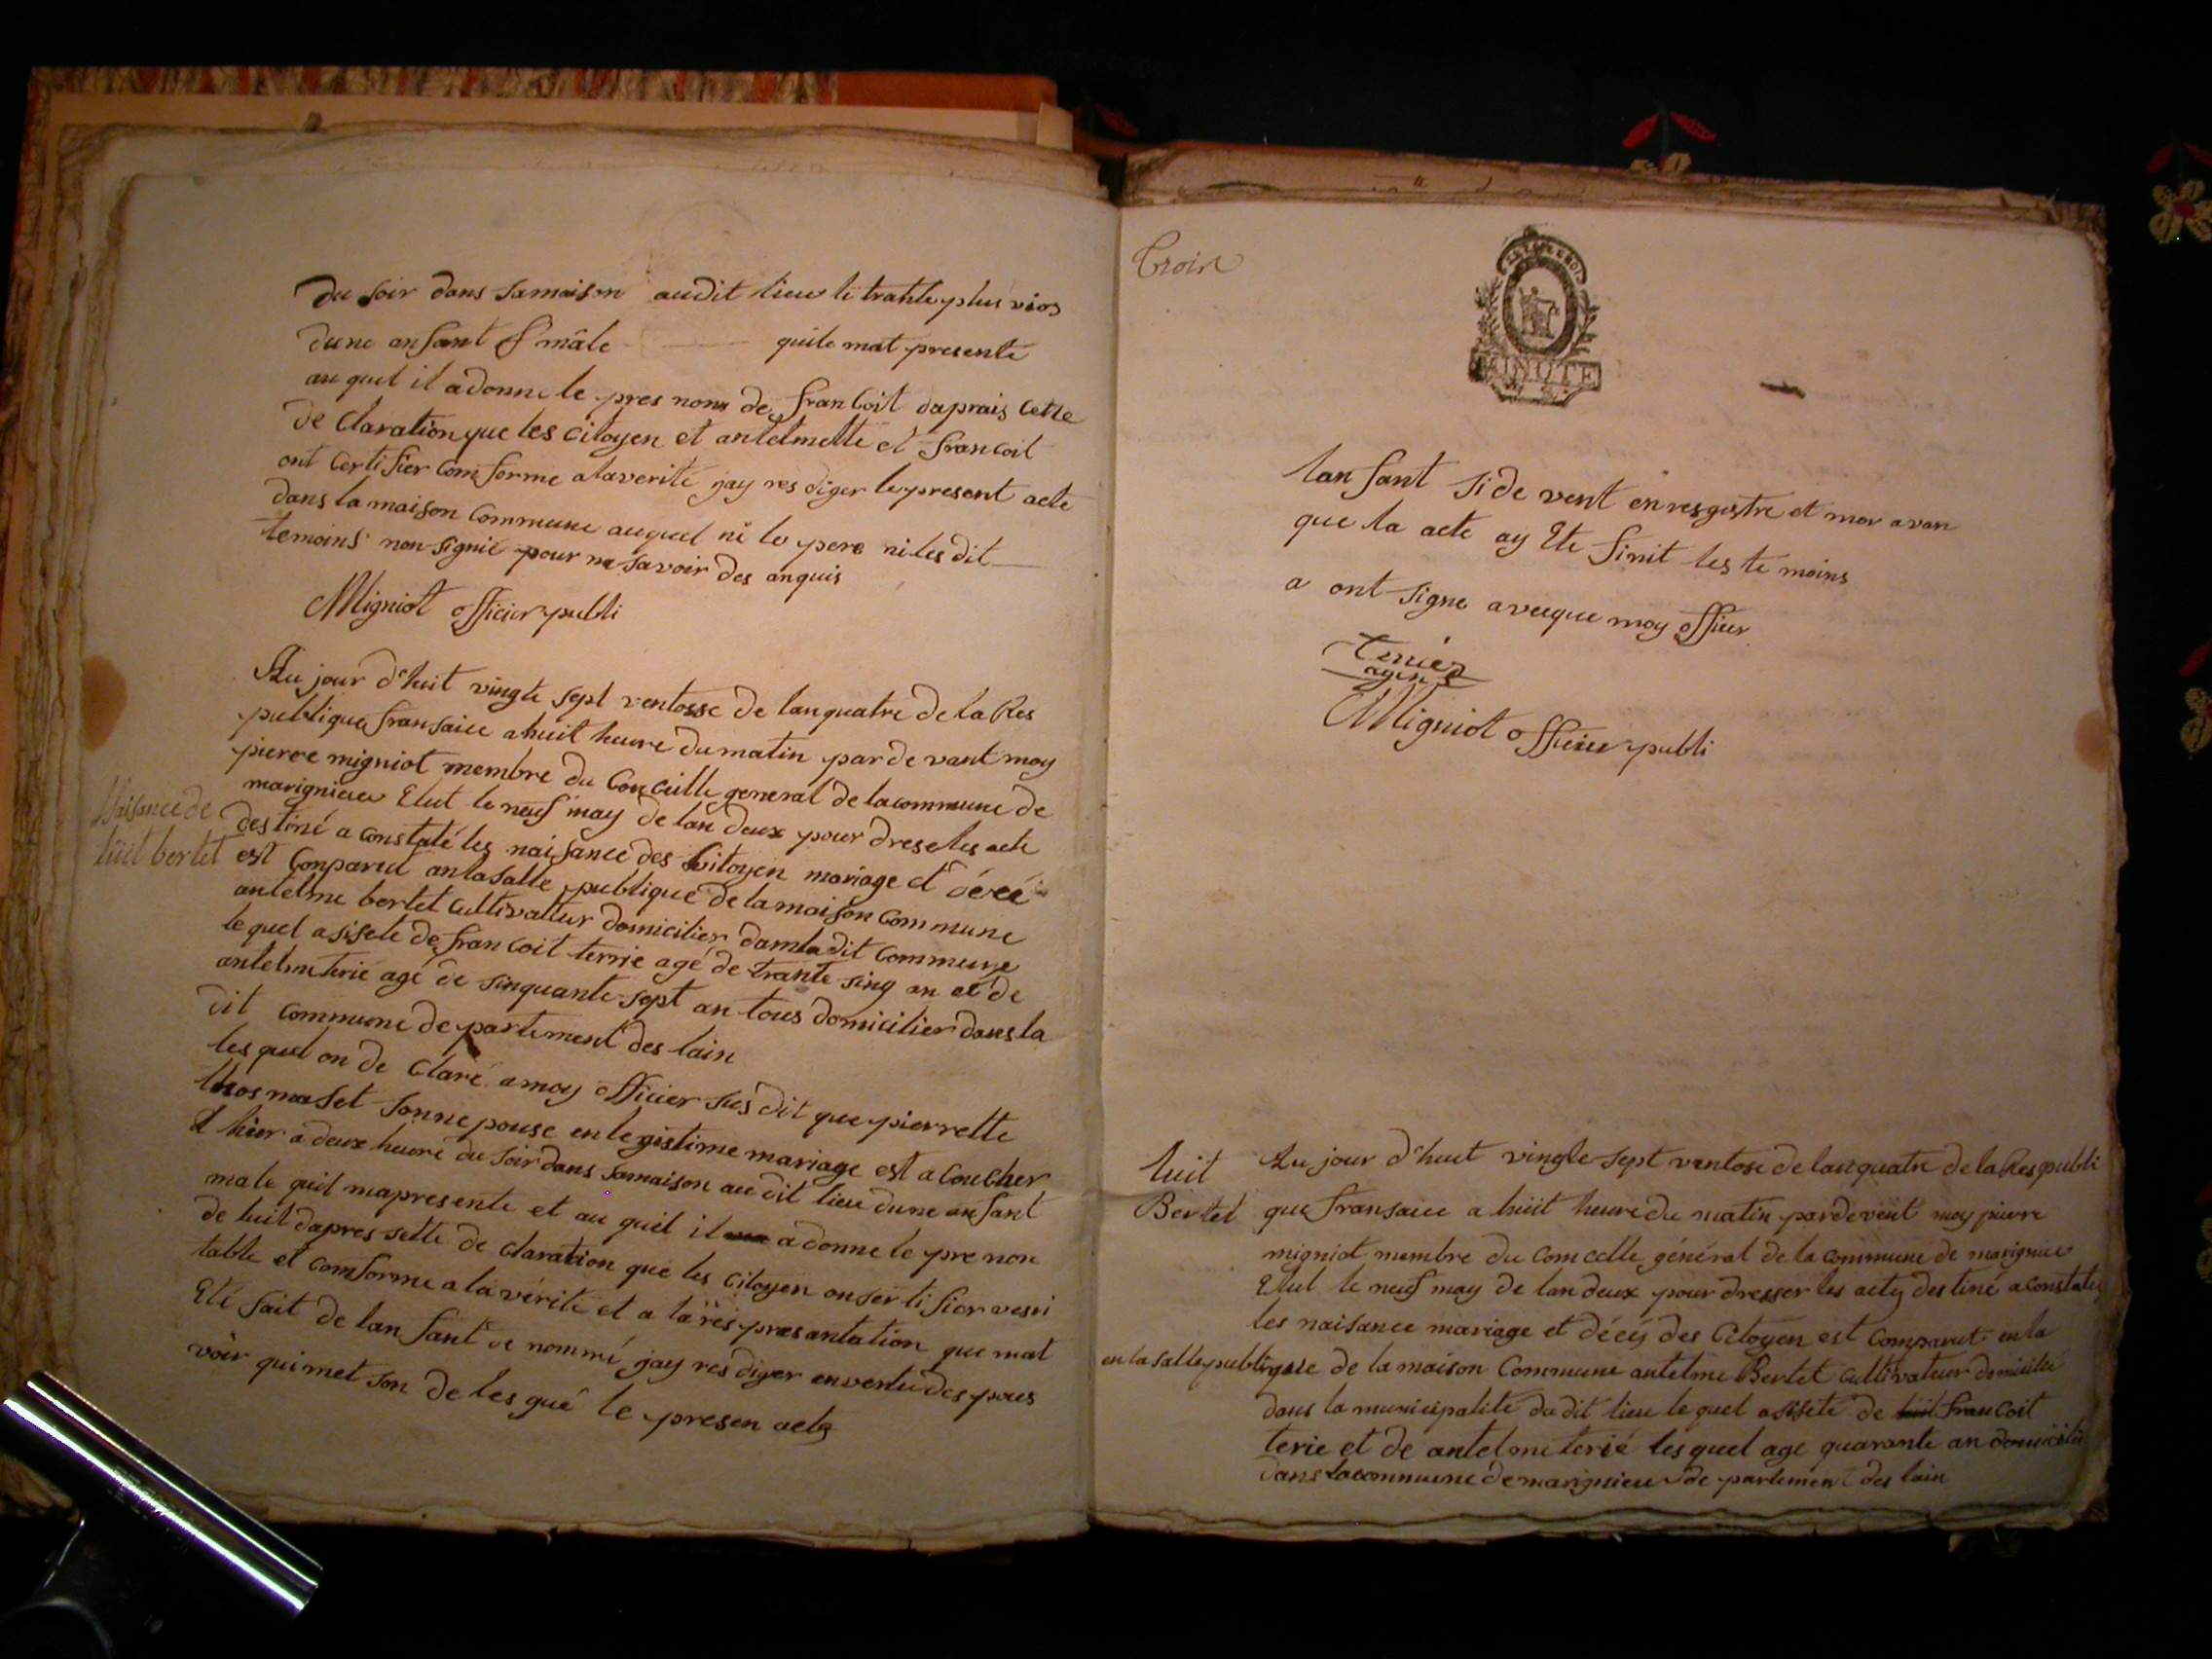 du soir dans samaison audit lieu le trante plus vios
dune ansant & mâle quile mat presenté
au quel il adonne le pres nom de francoit daprais cette
de Claration que les citoyen et antelmelle et francoit
ont Certifier Comforme alaverité jay res diger lepresent acte
dans la maison Commune auquel ni le pere ni les dit
temoins non signié pour ne savoir des anquis
Migniot officier publi
Au jour d'huit vingte sept ventosse de lan quatre de la Res
publique fransaice ahuit heure du matin par de vant moy
pierre migniot membre du Conceille general de lacommune de
marignieu Elut le neuf may de lan deux pour dreseles acte
Naisance de
luit bertet
destiné a constaté les naisance des Citoyen mariage et décé
est Comparut anlasalle publique de lamaison Commune
antelme bertet cultivateur domicilier damladit Commune
le quel asisete de francoit terrie agé de trante sinq an et de
antelme terié agé de sinquante sept an tous domicilier dans la
dit Commune de partement des lain
les quel on de Claré amoy officier sus dit que pierrette
thosmaset sonnepouse en legistime mariage est a Coucher
d hier a deux heure du soir dans samaison au dit lieu dune ansant
male quil mapresente et au quel il adonne le pre non
de luit dapres sette de Claration que les Citoyen onsertifier veri
table et Comforme a la vérité et a la res presantation que mat
Eté fait de lan sant de nommé jay res diger envertu des pous
voir qui met son de les gué le presen acte
Troise
MINUTE
lan sant si de vent enresgistre et mor avan
que la acte ay Ete finit les te moins
a ont signe avecque moy officier
terrié
agent
Migniot officier publi
luit
Bertet
Au jour d'huit vingte sept ventose de lan quatre de la Respubli
que fransaice a huit heure du matin pardevent moy pierre
migniot membre du Comcelle général de la Commune de marignieu
Elut le neuf may de lan deux pour dresser les acte destiné a constater
les naisance mariage et décès des Citoyen est Comparut en la
en la salle publique de la maison Commune antelme Bertet cultivateur domicilié
dans la municipalité du dit lieu le quel asisete de francoit
terie et de antelme terié les quel age quarante an domicilié
dans lacommune de marignieu de partement des lain